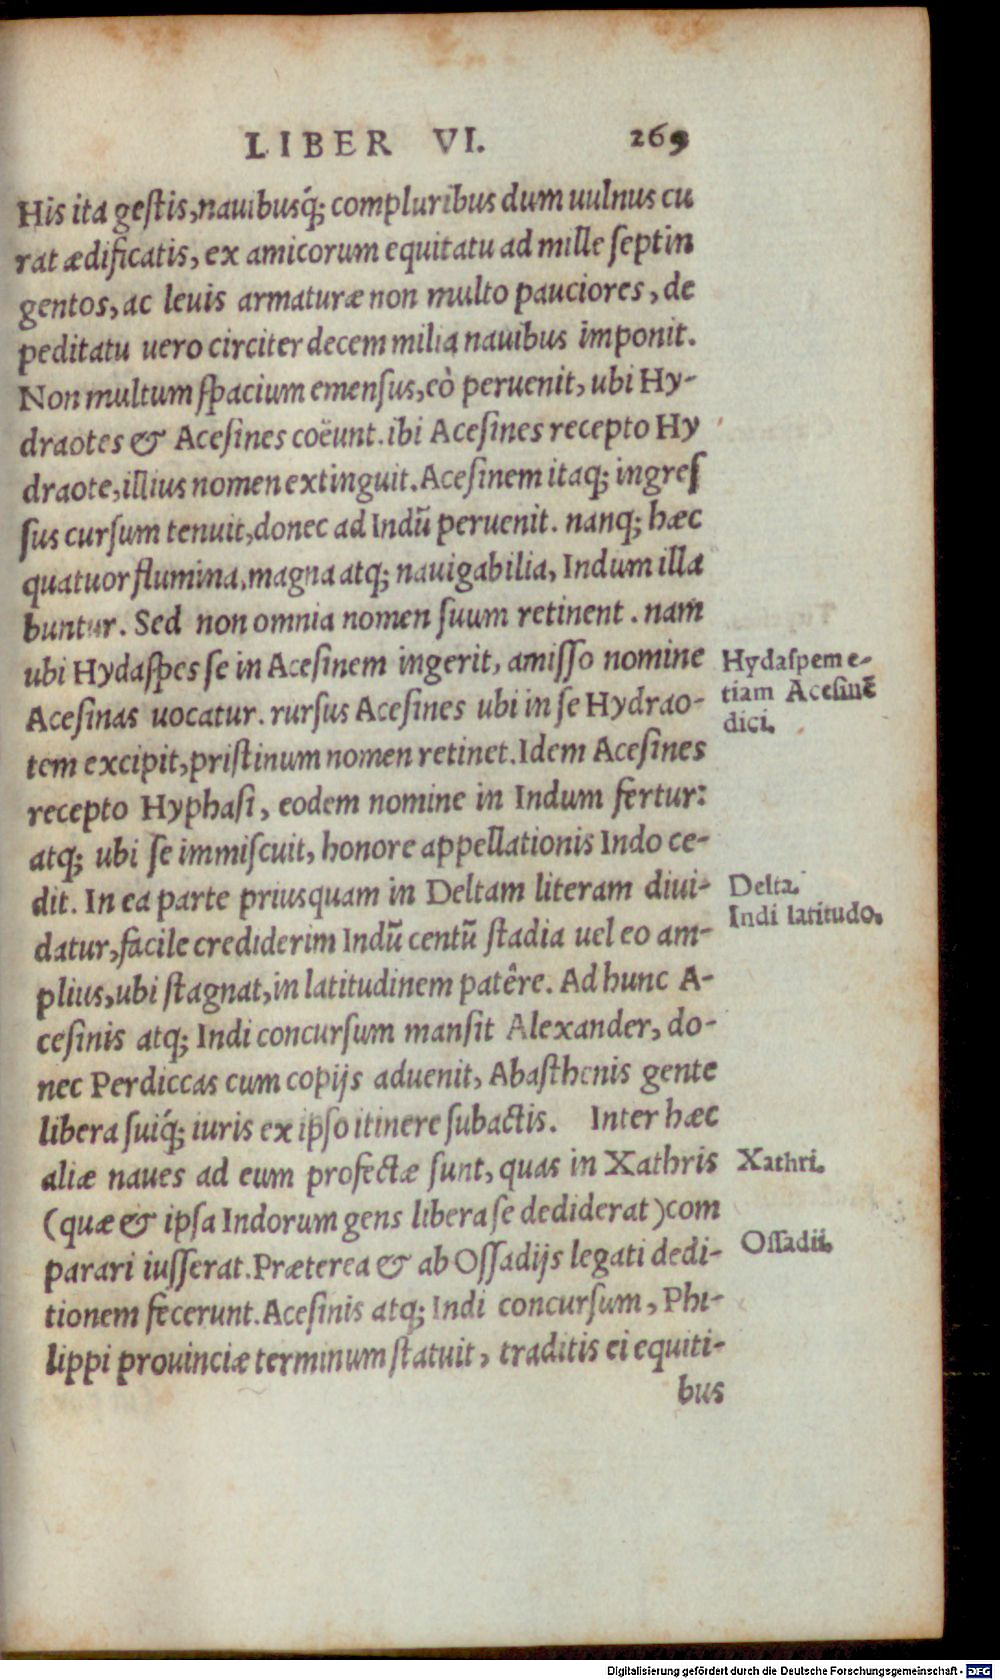 LIBER VI. 269
His ita geſtis, nauibusq́; compluribus dum uulnus cu
rat ædificatis, ex amicorum equitatu ad mille ſeptin
gentos, ac leuis armaturæ non multo pauciores, de
peditatu uero circiter decem milia nauibus imponit.
Non multum ſpacium emenſus, eò peruenit, ubi Hy-
draotes & Aceſines coëunt. ibi Aceſines recepto Hy
draote, illius nomen extinguit. Aceſinem itaq; ingreſ
ſus curſum tenuit, donec ad Indũ peruenit. nanq; hæc
quatuor flumina, magna atq; nauigabilia, Indum illa
buntur. Sed non omnia nomen ſuum retinent. nam
ubi Hydaſpes ſe in Aceſinem ingerit, amiſſo nomine
Aceſinas uocatur. rurſus Aceſines ubi in ſe Hydrao-
tem excipit, priſtinum nomen retinet. Idem Aceſines
recepto Hyphaſi, eodem nomine in Indum fertur:
atq; ubi ſe immiſcuit, honore appellationis Indo ce-
dit. In ea parte priusquam in Deltam literam diui-
datur, facile crediderim Indũ centũ ſtadia uel eo am-
plius, ubi ſtagnat, in latitudinem patêre. Ad hunc A-
ceſinis atq; Indi concurſum manſit Alexander, do-
nec Perdiccas cum copijs aduenit, Abaſthenis gente
libera ſuiq́; iuris ex ipſo itinere ſubactis. Inter hæc
aliæ naues ad eum profectæ ſunt, quas in Xathris
(quæ & ipſa Indorum gens libera ſe dediderat) com
parari iuſſerat. Præterea & ab Oſſadijs legati dedi-
tionem fecerunt. Aceſinis atq; Indi concurſum, Phi-
lippi prouinciæ terminum ſtatuit, traditis ei equiti-
bus
Hydaſpem e-
tiam Aceſinẽ
dici.
Delta.
Indi latitudo.
Xathri.
Oſſadii.
Digitalisierung gefördert durch die Deutsche Forschungsgemeinschaft - DFG